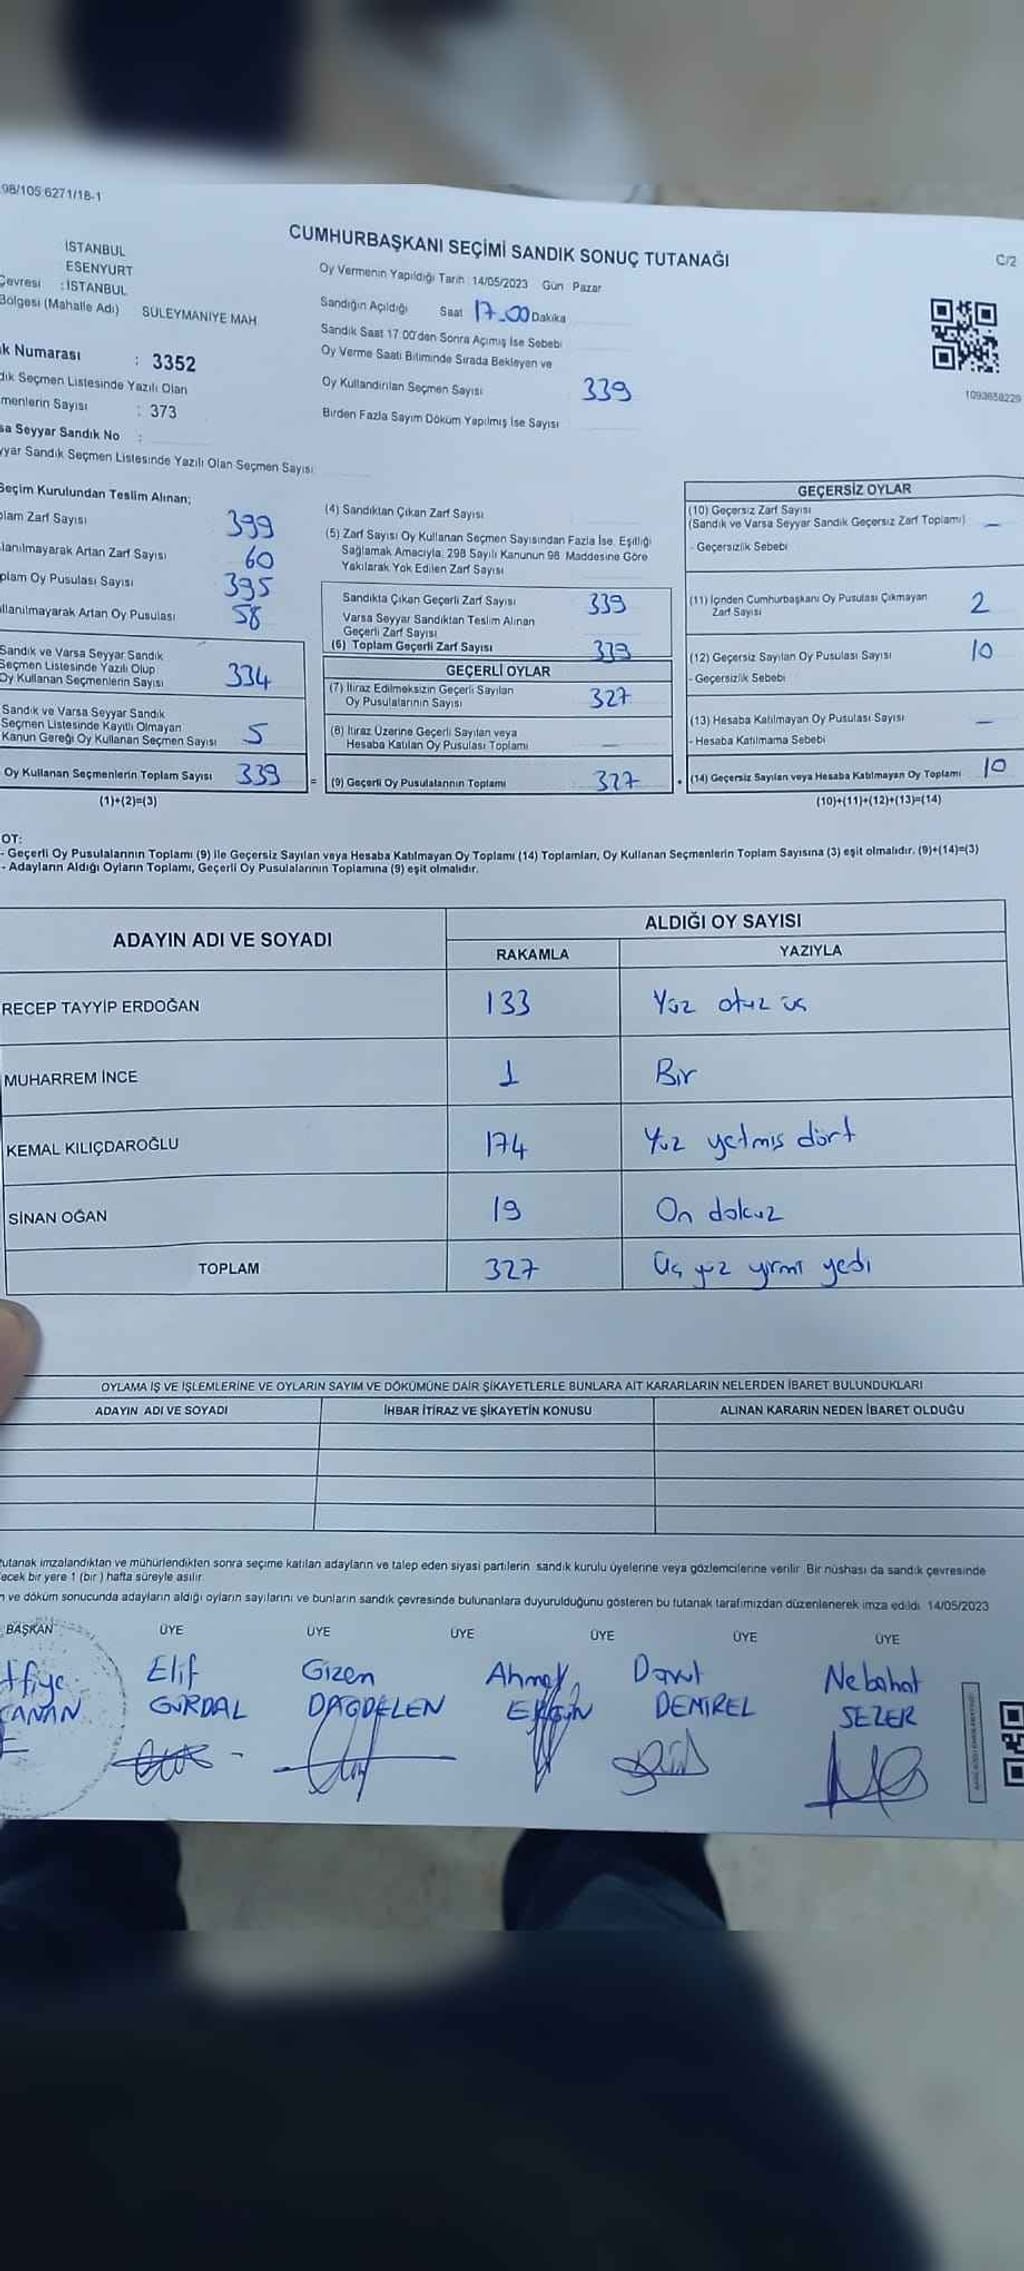 98/105:6271/18-1
CUMHURBAŞKANI SEÇİMİ SANDIK SONUÇ TUTANAĞI
C/2
İSTANBUL
ESENYURT
Çevresi : İSTANBUL
Bölgesi (Mahalle Adı) SÜLEYMANİYE MAH
k Numarası : 3352
dık Seçmen Listesinde Yazılı Olan
menlerin Sayısı : 373
sa Seyyar Sandık No :
yyar Sandık Seçmen Listesinde Yazılı Olan Seçmen Sayısı
Oy Vermenin Yapıldığı Tarih : 14/05/2023 Gün Pazar
Sandığın Açıldığı Saat 17.00 Dakika
Sandık Saat 17:00'den Sonra Açımış İse Sebebi
Oy Verme Saati Bitiminde Sırada Bekleyen ve
Oy Kullandırılan Seçmen Sayısı 339
Birden Fazla Sayım Döküm Yapılmış İse Sayısı
1093658229
Seçim Kurulundan Teslim Alınan;
plam Zarf Sayısı 399
lanılmayarak Artan Zarf Sayısı 60
plam Oy Pusulası Sayısı 395
ullanılmayarak Artan Oy Pusulası 58
Sandık ve Varsa Seyyar Sandık
Seçmen Listesinde Yazılı Olup
Oy Kullanan Seçmenlerin Sayısı 334
Sandık ve Varsa Seyyar Sandık
Seçmen Listesinde Kayıtlı Olmayan
Kanun Gereği Oy Kullanan Seçmen Sayısı 5
Oy Kullanan Seçmenlerin Toplam Sayısı 339
(1)+(2)=(3)
(4) Sandıktan Çıkan Zarf Sayısı
(5) Zarf Sayısı Oy Kullanan Seçmen Sayısından Fazla İse, Eşitliği
Sağlamak Amacıyla, 298 Sayılı Kanunun 98. Maddesine Göre
Yakılarak Yok Edilen Zarf Sayısı
Sandıkta Çıkan Geçerli Zarf Sayısı 339
Varsa Seyyar Sandıktan Teslim Alınan
Geçerli Zarf Sayısı
(6) Toplam Geçerli Zarf Sayısı 339
GEÇERLİ OYLAR
(7) İtiraz Edilmeksizin Geçerli Sayılan
Oy Pusulalarının Sayısı 327
(8) İtiraz Üzerine Geçerli Sayılan veya
Hesaba Katılan Oy Pusulası Toplamı —
= (9) Geçerli Oy Pusulalarının Toplamı 327
GEÇERSİZ OYLAR
(10) Geçersiz Zarf Sayısı
(Sandık ve Varsa Seyyar Sandık Geçersiz Zarf Toplamı) —
- Geçersizlik Sebebi
(11) İçinden Cumhurbaşkanı Oy Pusulası Çıkmayan
Zarf Sayısı 2
(12) Geçersiz Sayılan Oy Pusulası Sayısı 10
- Geçersizlik Sebebi
(13) Hesaba Katılmayan Oy Pusulası Sayısı —
- Hesaba Katılmama Sebebi
+ (14) Geçersiz Sayılan veya Hesaba Katılmayan Oy Toplamı 10
(10)+(11)+(12)+(13)=(14)
OT:
- Geçerli Oy Pusulalarının Toplamı (9) ile Geçersiz Sayılan veya Hesaba Katılmayan Oy Toplamı (14) Toplamları, Oy Kullanan Seçmenlerin Toplam Sayısına (3) eşit olmalıdır. (9)+(14)=(3)
- Adayların Aldığı Oyların Toplamı, Geçerli Oy Pusulalarının Toplamına (9) eşit olmalıdır.
ADAYIN ADI VE SOYADI
ALDIĞI OY SAYISI
RAKAMLA YAZIYLA
RECEP TAYYİP ERDOĞAN 133 Yüz otuz üç
MUHARREM İNCE 1 Bir
KEMAL KILIÇDAROĞLU 174 Yüz yetmiş dört
SİNAN OĞAN 19 On dokuz
TOPLAM 327 Üç yüz yirmi yedi
OYLAMA İŞ VE İŞLEMLERİNE VE OYLARIN SAYIM VE DÖKÜMÜNE DAİR ŞİKAYETLERLE BUNLARA AİT KARARLARIN NELERDEN İBARET BULUNDUKLARI
ADAYIN ADI VE SOYADI İHBAR İTİRAZ VE ŞİKAYETİN KONUSU ALINAN KARARIN NEDEN İBARET OLDUĞU
tutanak imzalandıktan ve mühürlendikten sonra seçime katılan adayların ve talep eden siyasi partilerin sandık kurulu üyelerine veya gözlemcilerine verilir. Bir nüshası da sandık çevresinde
ecek bir yere 1 (bir ) hafta süreyle asılır.
n ve döküm sonucunda adayların aldığı oyların sayılarını ve bunların sandık çevresinde bulunanlara duyurulduğunu gösteren bu tutanak tarafımızdan düzenlenerek imza edildi. 14/05/2023
BAŞKAN ÜYE ÜYE ÜYE ÜYE ÜYE ÜYE
tfiye Elif Gizen Ahmet Davut Nebahat
CANAN GÜRDAL DAĞDELEN ERGÜN DEMİREL SEZER